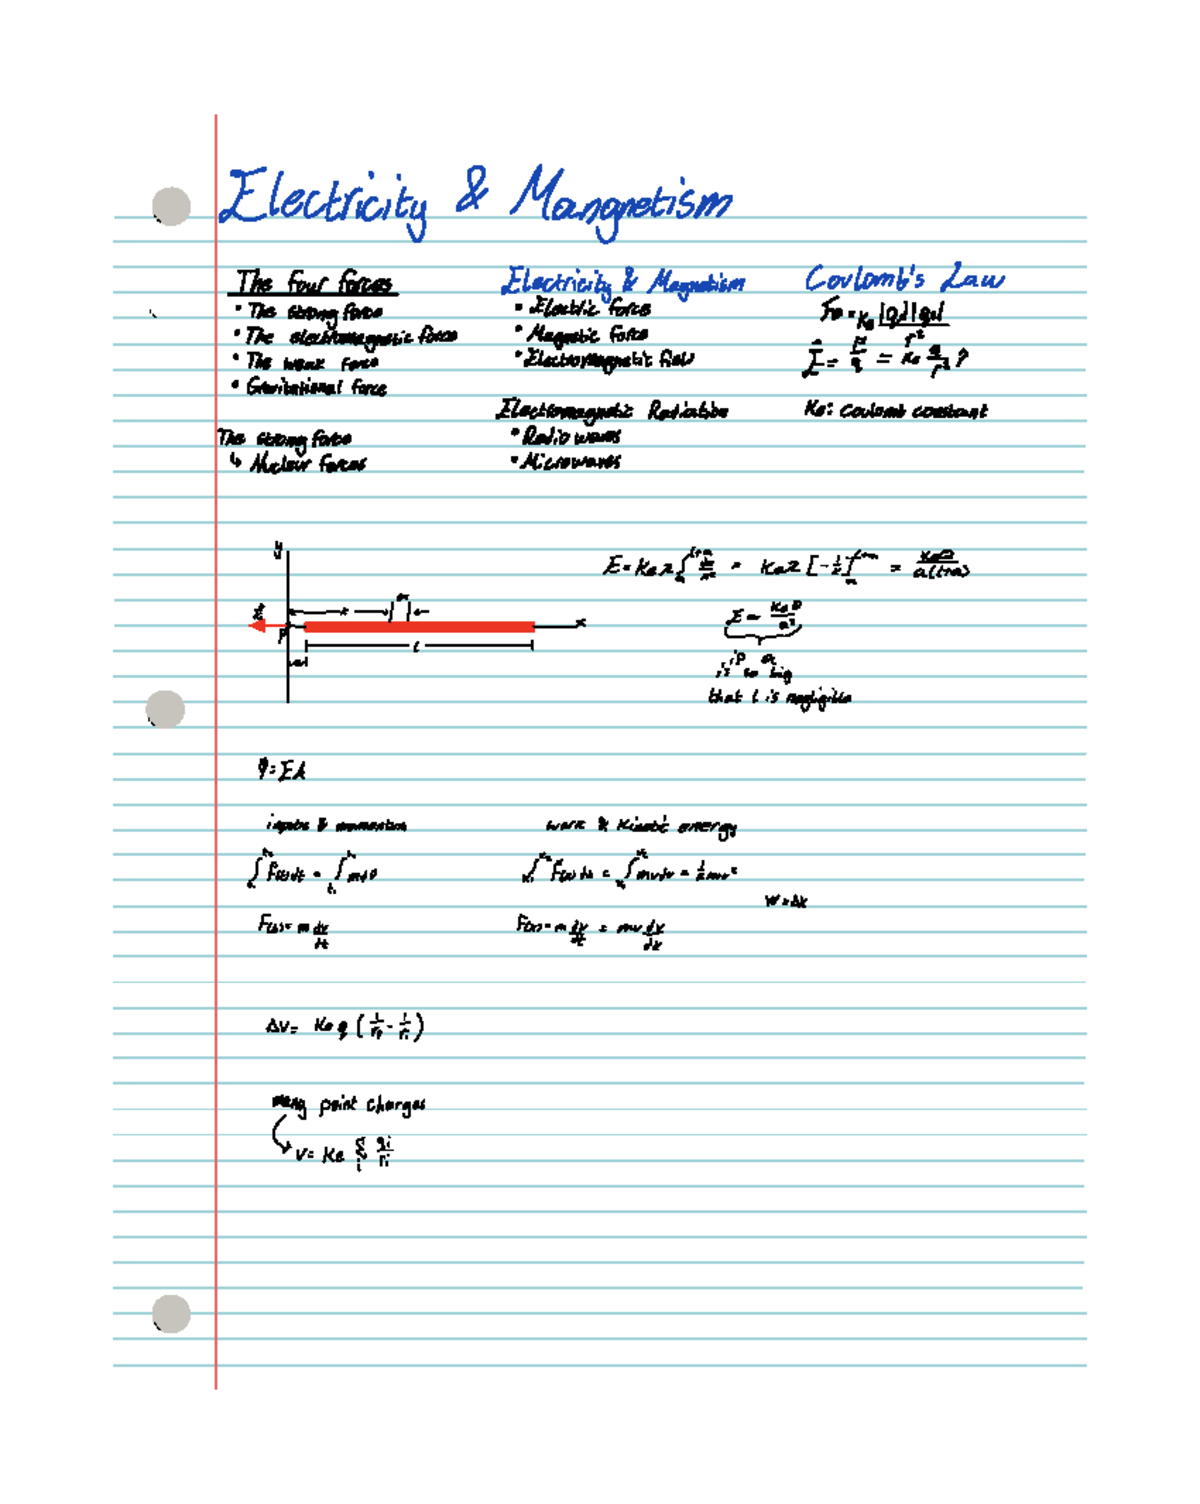 Electricity & Mangnetism
The four forces
• The strong force
• The electromagnetic force
• The weak force
• Gravitational force
The strong force
↳ Nuclear forces
Electricity & Magnetism
• Electric force
• Magnetic force
• Electromagnetic field
Electromagnetic Radiation
• Radio waves
• Microwaves
Coulomb's Law
Fe = Ke |q||q| / r²
E = F/q = Ke q/r² r̂
Ke: Coulomb constant
y
E
x
P
a
l
x
E = Ke λ ∫ dx/x² = Ke λ [-1/x] = KeQ / a(l+a)
E ≈ KeQ / a²
is so big
that l is negligible
φ = EA
impulse & momentum
work & kinetic energy
∫ F(t) dt = ∫ m dv
∫ F(x) dx = ∫ mv dv = ½ mv²
W = Δk
m dv/dt
F(x) = m dv/dt = mv dv/dx
ΔV = Ke q (1/r - 1/r)
many point charges
V = Ke Σ qi/ri